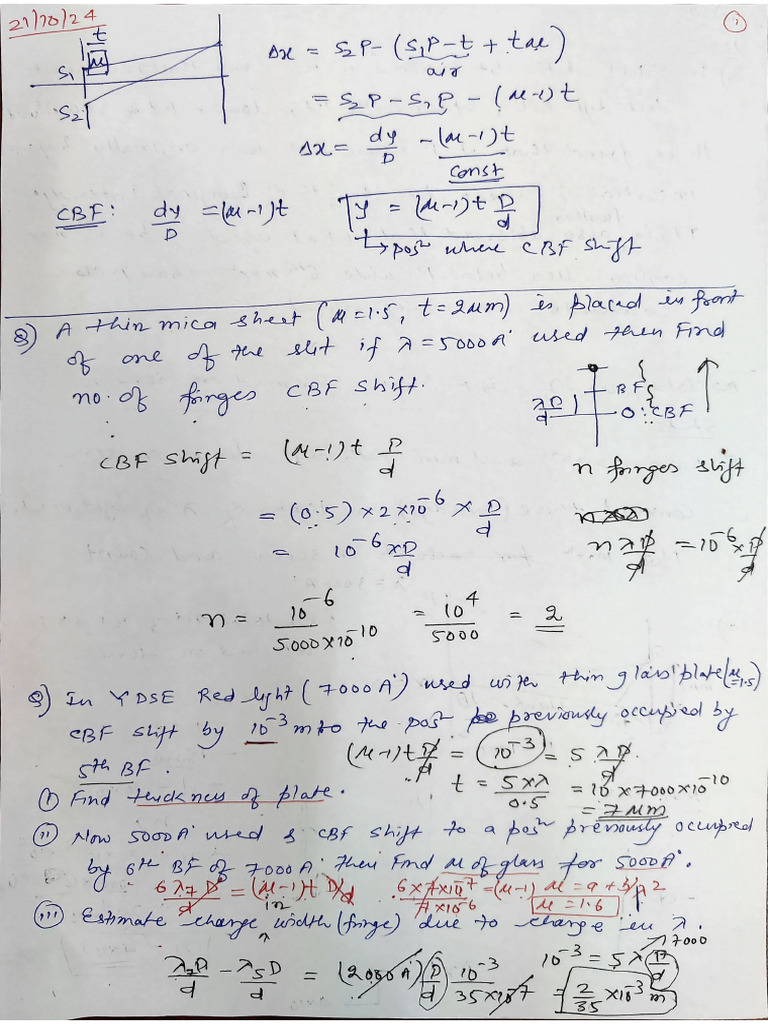 21/10/24
1
t
μ
S₁
S₂
Δx = S₂P - (S₁P - t + tμ)
air
= S₂P - S₁P - (μ-1)t
Δx = dy/D - (μ-1)t
const
CBF: dy/D = (μ-1)t
y = (μ-1)t D/d
↳ posⁿ where CBF shift
Q) A thin mica sheet (μ=1.5, t=2μm) is placed in front
of one of the slit if λ=5000A° used then Find
no. of fringes CBF shift.
BF
λD/d
O: CBF
CBF shift = (μ-1)t D/d
n fringes shift
= (0.5) × 2×10⁻⁶ × D/d
= 10⁻⁶ × D/d
nλD/d = 10⁻⁶ × D/d
n = 10⁻⁶/5000×10⁻¹⁰ = 10⁴/5000 = 2
Q) In YDSE Red light (7000A°) used with thin glass plate (μ=1.5)
CBF shift by 10⁻³ m to the posⁿ previously occupied by
5th BF.
(μ-1)t D/d = 10⁻³ = 5 λD/d
t = 5×λ/0.5 = 10×7000×10⁻¹⁰
= 7μm
(i) Find thickness of plate.
(ii) Now 5000A° used & CBF shift to a posⁿ previously occupied
by 6th BF of 7000A° then Find μ of glass for 5000A°.
6λ₇D/d = (μ-1)t D/d
6×7×10⁻⁷/7×10⁻⁶ = (μ-1)
μ = a + b/λ²
μ = 1.6
(iii) Estimate change in width (fringe) due to change in λ.
7000
λ₇D/d - λ₅D/d = (2000A°) D/d
10⁻³/35×10⁻⁷
10⁻³ = 5λ D/d
= 2/35 × 10⁻³ m